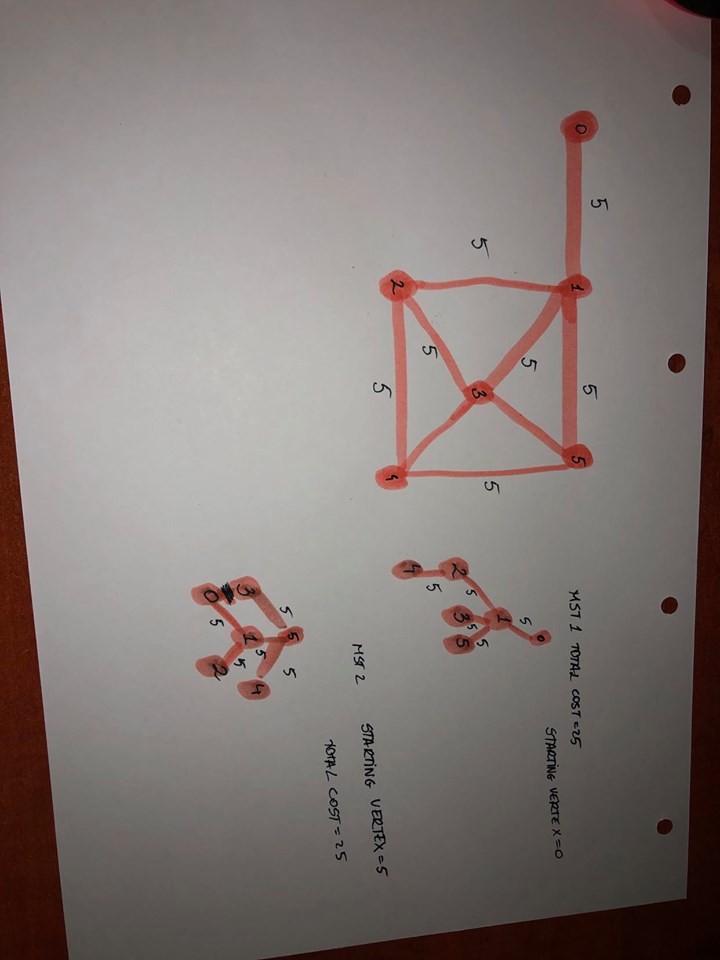 5 5
0 1 5
5
5 3 5
5
2 4
5
MST 1 TOTAL COST=25
STARTING VERTEX=0
0
5
1
5 5 5
2 3 5
5
4
MST 2 STARTING VERTEX=5
TOTAL COST=25
5
5 5
3 1 5 4
5 5
0 2